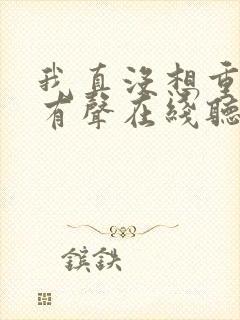 我真没想重
有聲在綫聽
鑌鉄